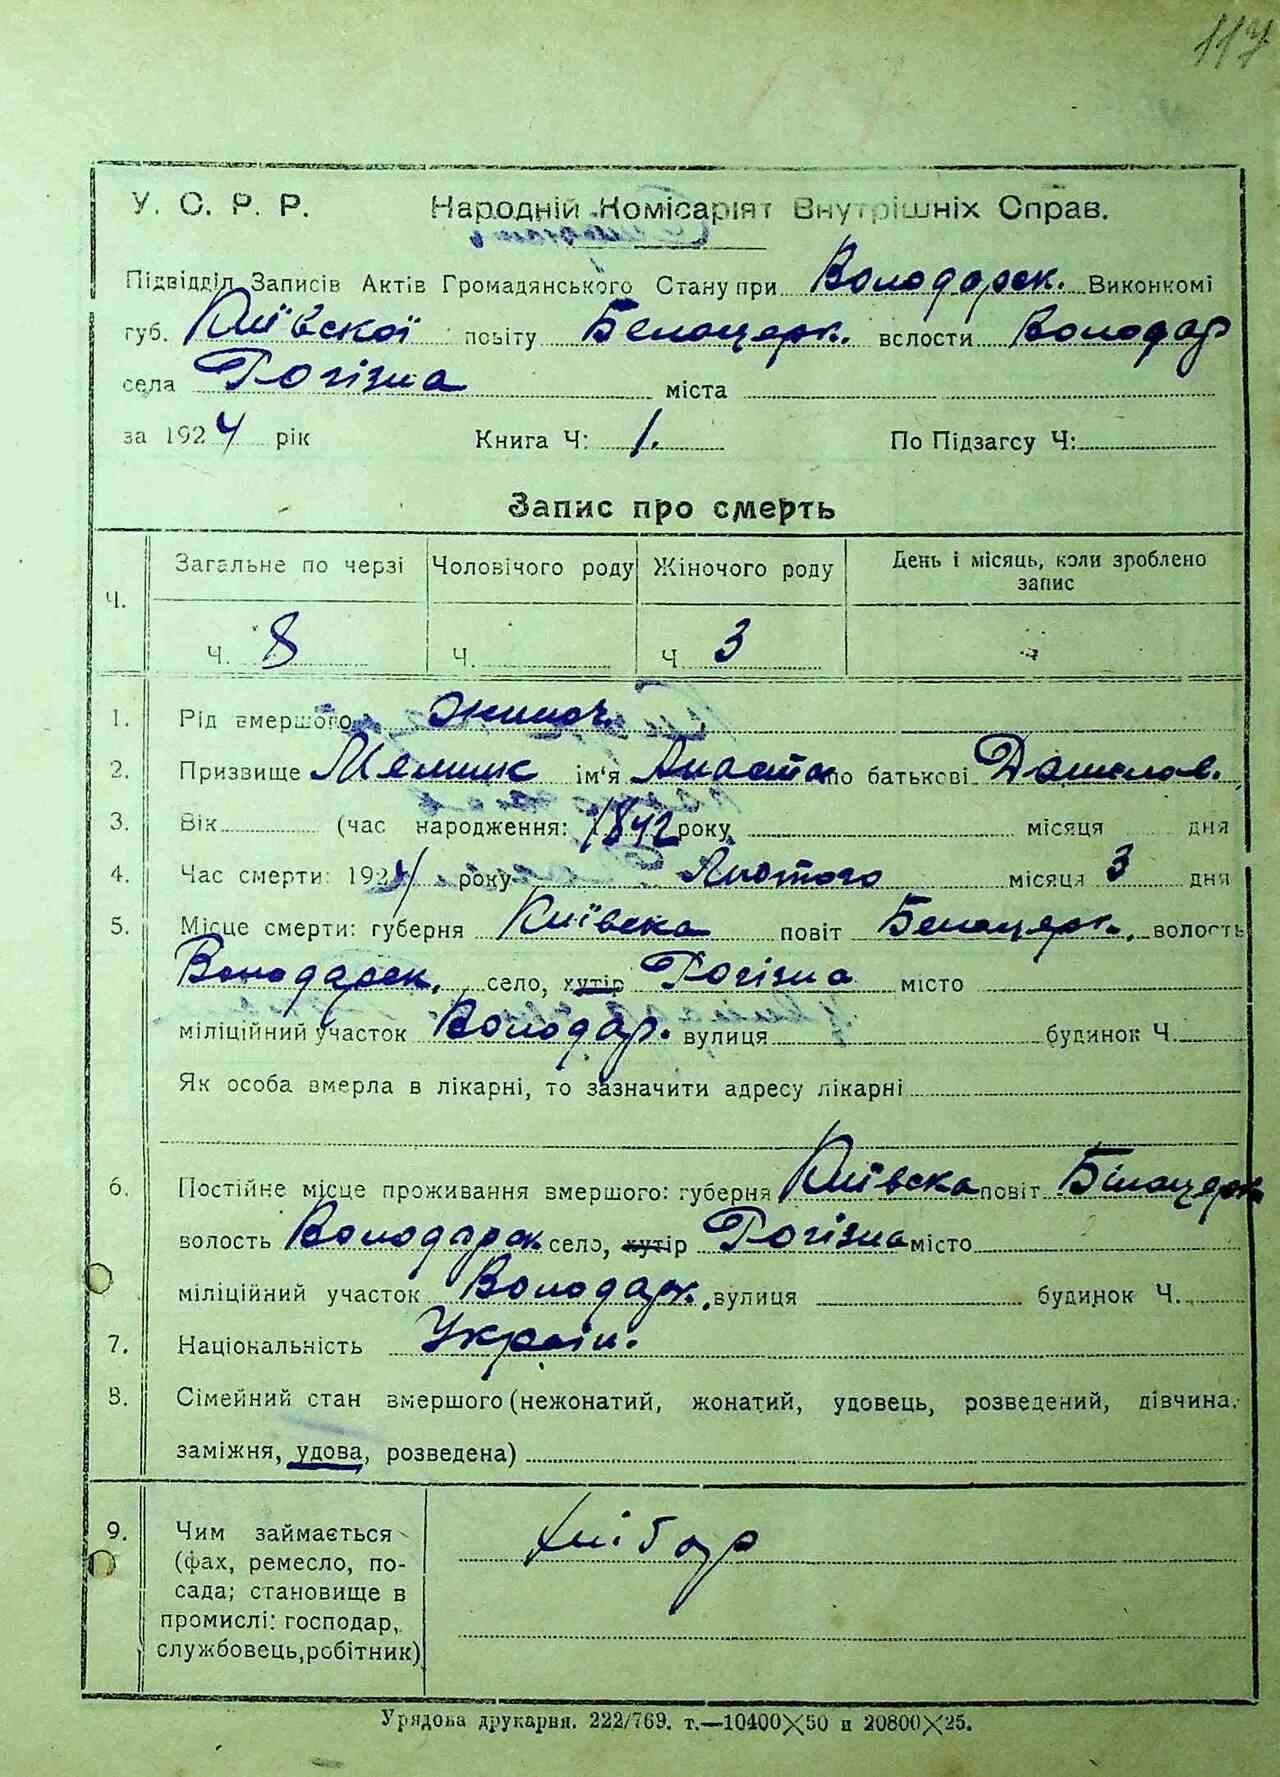 117
У. С. Р. Р. Народній Комісаріят Внутрішніх Справ.
Підвідділ Записів Актів Громадянського Стану при Володарск. Виконкомі
губ. Київскої повіту Белоцерк. волости Володар
села Рогізна міста
за 1924 рік Книга Ч: 1. По Підзагсу Ч:
Запис про смерть
Ч. Загальне по черзі Чоловічого роду Жіночого роду День і місяць, коли зроблено
запис
Ч. 8 Ч. Ч 3
1. Рід вмершого жиноч.
2. Призвище Мельник ім'я Анаста по батькові Данилов.
3. Вік (час народження: 1842 року місяця дня
4. Час смерти: 1924 року Лютого місяця 3 дня
5. Місце смерти: губерня Київска повіт Белоцерк. волость
Володарск. село, хутір Рогізна місто
міліційний участок Володар. вулиця будинок Ч.
Як особа вмерла в лікарні, то зазначити адресу лікарні
6. Постійне місце проживання вмершого: губерня Київска повіт Білоцерк
волость Володарск село, хутір Рогізна місто
міліційний участок Володарк. вулиця будинок Ч.
7. Національність Україн.
8. Сімейний стан вмершого (нежонатий, жонатий, удовець, розведений, дівчина,
заміжня, удова, розведена)
9. Чим займається хлібор
(фах, ремесло, по-
сада; становище в
промислі: господар,
службовець, робітник)
Урядова друкарня. 222/769. т.—10400×50 и 20800×25.